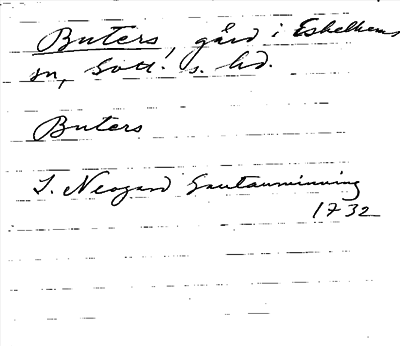 Buters, gård i Eskelhems
sn, Gotl. s. hd.
Buters
J. Neogard Gautauminning
1732